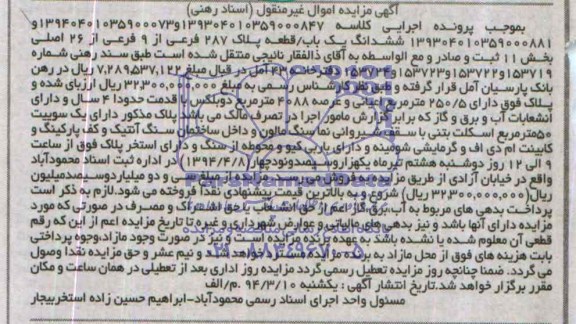 آگهی مزایده اموال غیرمنقول (اسناد رهنی)
بموجب پرونده اجرایی کلاسه ۱۳۹۳۰۴۰۱۰۳۵۹۰۰۰۸۴۷و۱۳۹۴۰۴۰۱۰۳۵۹۰۰۰۰۷۳و
۱۳۹۳۰۴۰۱۰۳۵۹۰۰۰۸۸۱ ششدانگ یک باب/قطعه پلاک ۲۸۷ فرعی از ۹ فرعی از ۲۶ اصلی
بخش ۱۱ ثبت و صادر و مع الواسطه به آقای ذالفقار نائیجی منتقل شده است طبق سند رهنی شماره
۱۵۳۷۱۹و۱۵۳۷۲۲و۱۵۳۷۲۳و دفترخانه ۴۳ آمل در قبال مبلغ ۷,۲۸۹,۵۳۷,۱۲۲ ریال در رهن
بانک پارسیان آمل قرار گرفته و طبق نظر کارشناس رسمی به مبلغ ۳۲,۳۰۰,۰۰۰,۰۰۰ ریال ارزیابی شده و
پلاک فوق دارای ۲۵۰/۵ مترمربع اعیانی و عرصه ۴۰۸۸ مترمربع دوبلکس با قدمت حدودا ۴ سال و دارای
انشعابات آب و برق و گاز که برابر گزارش مامور اجرا در تصرف مالک می باشد. پلاک مذکور دارای یک سوییت
۵۰مترمربع اسکلت بتنی با سقف شیروانی نما سنگ مالون و داخل ساختمان سنگ آنتیک و کف پارکینگ و
کابینت ام دی اف و گرمایشی شومینه و دارای پارتی کیو و محوطه از سنگ و دارای استخر پلاک فوق از ساعت
۹ الی ۱۲ روز دوشنبه هشتم تیرماه یکهزاروسیصدونودچهار(۱۳۹۴/۴/۸) در اداره ثبت اسناد محمودآباد
واقع در خیابان آزادی از طریق مزایده به فروش می رسد. مزایده از مبلغ سی و دو میلیاردوسیصدمیلیون
ریال(۳۲,۳۰۰,۰۰۰,۰۰۰ ریال) شروع و به بالاترین قیمت پیشنهادی نقدا فروخته می شود.لازم به ذکر است
پرداخت بدهی های مربوط به آب،برق،گاز اعم از حق انشعاب یا حق اشتراک و مصرف در صورتی که مورد
مزایده دارای آنها باشد و نیز بدهی های مالیاتی و عوارض شهرداری و غیره تا تاریخ مزایده اعم از این که رقم
قطعی آن معلوم شده یا نشده باشد به عهده برنده مزایده است و نیز در صورت وجود مازاد،وجوه پرداختی
بابت هزینه های فوق از محل مازاد به برنده مزایده مسترد خواهد شد و نیم عشر و حق مزایده نقدا وصول
می گردد. ضمنا چنانچه روز مزایده تعطیل رسمی گردد مزایده روز اداری بعد از تعطیلی در همان ساعت و مکان
مقرر برگزار خواهد شد.تاریخ انتشار آگهی : یکشنبه ۹۴/۳/۱۰ .م/الف
مسئول واحد اجرای اسناد رسمی محمودآباد-ابراهیم حسین زاده استخربیجار